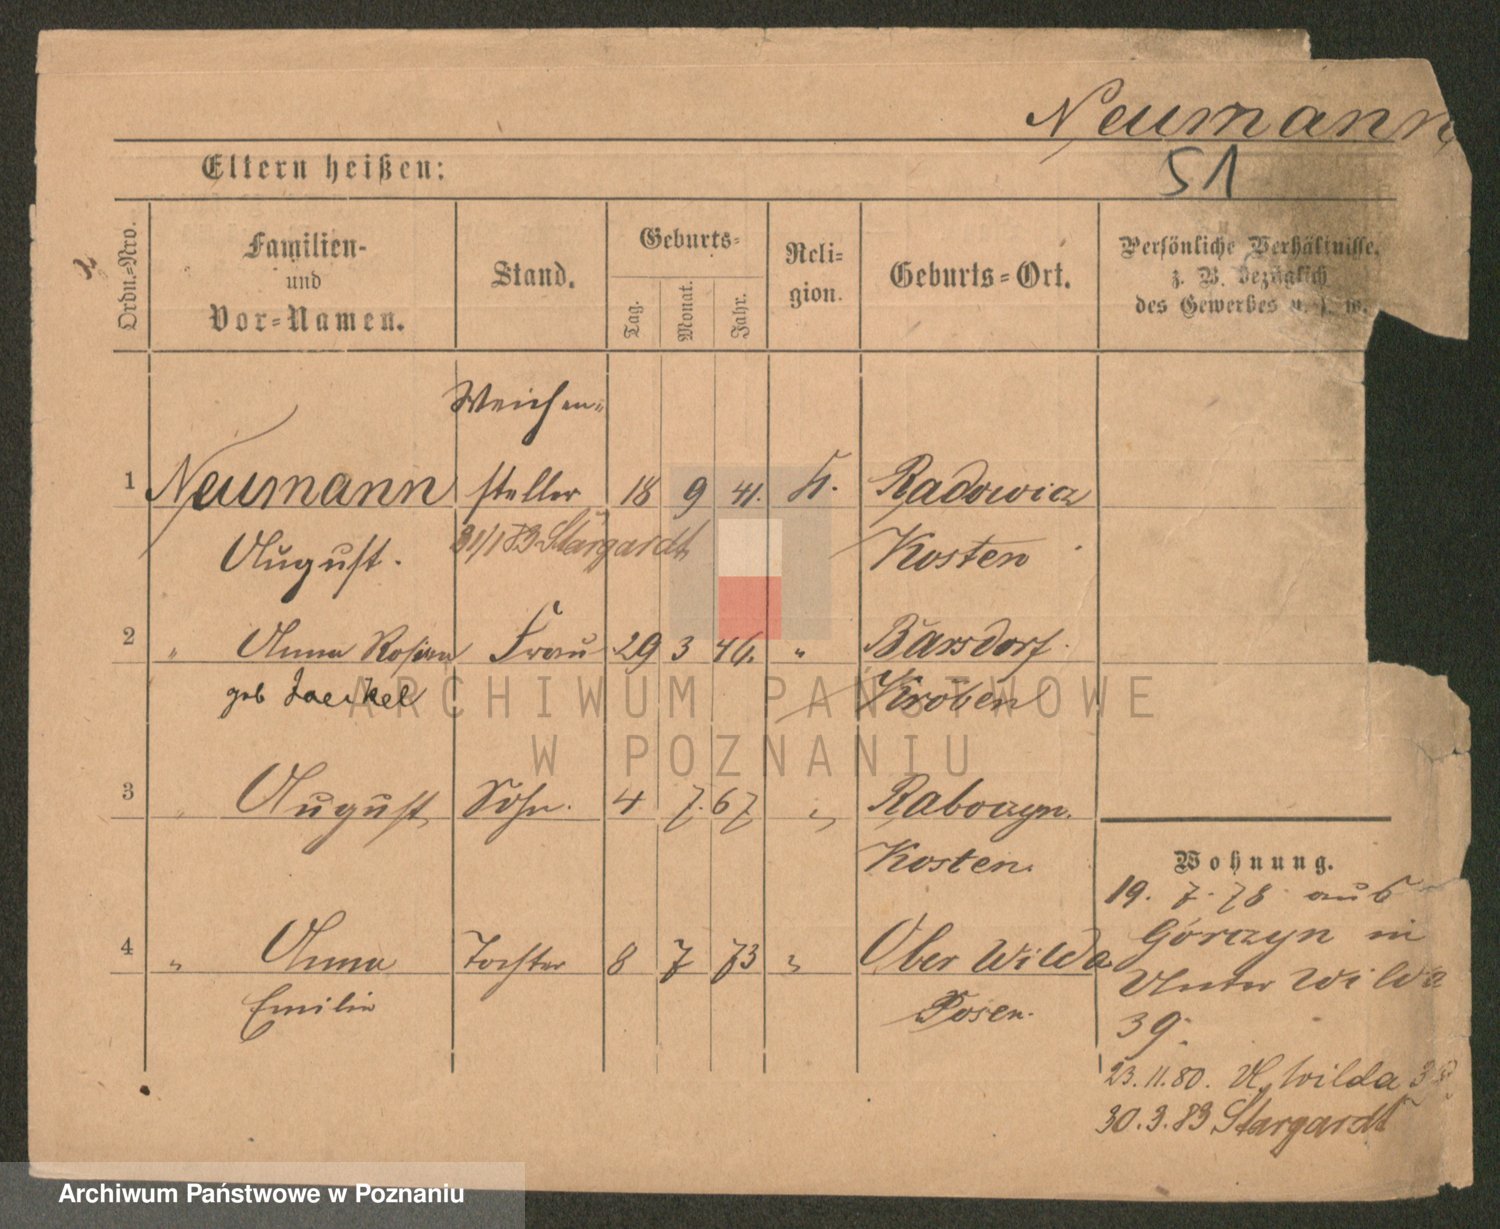 Neumann
51
Eltern heißen:
Ordn.=Nro.
Familien-
und
Vor=Namen.
Stand.
Geburts=
Tag.
Monat.
Jahr.
Reli=
gion.
Geburts=Ort.
Persönliche Verhältnisse,
z. B. bezüglich
des Gewerbes u. s. w.
Weichen=
1 Neumann steller 18 9 41. k. Radowicz
August. 31/1 83 Stargardt Kosten
2 " Anna Rosina Frau 29 3 46. " Barsdorf.
geb Jaeckel Kröben
3 " August Sohn. 4 7. 67 " Raborzyn.
Kosten.
4 " Anna Tochter 8 7 73 " Ober Wilda
Emilie Posen.
Wohnung.
19. 7. 78 aus
Górczyn in
Unter Wilda
39.
23. 11. 80. U. Wilda
30. 3. 83 Stargardt
ARCHIWUM PAŃSTWOWE
W POZNANIU
Archiwum Państwowe w Poznaniu